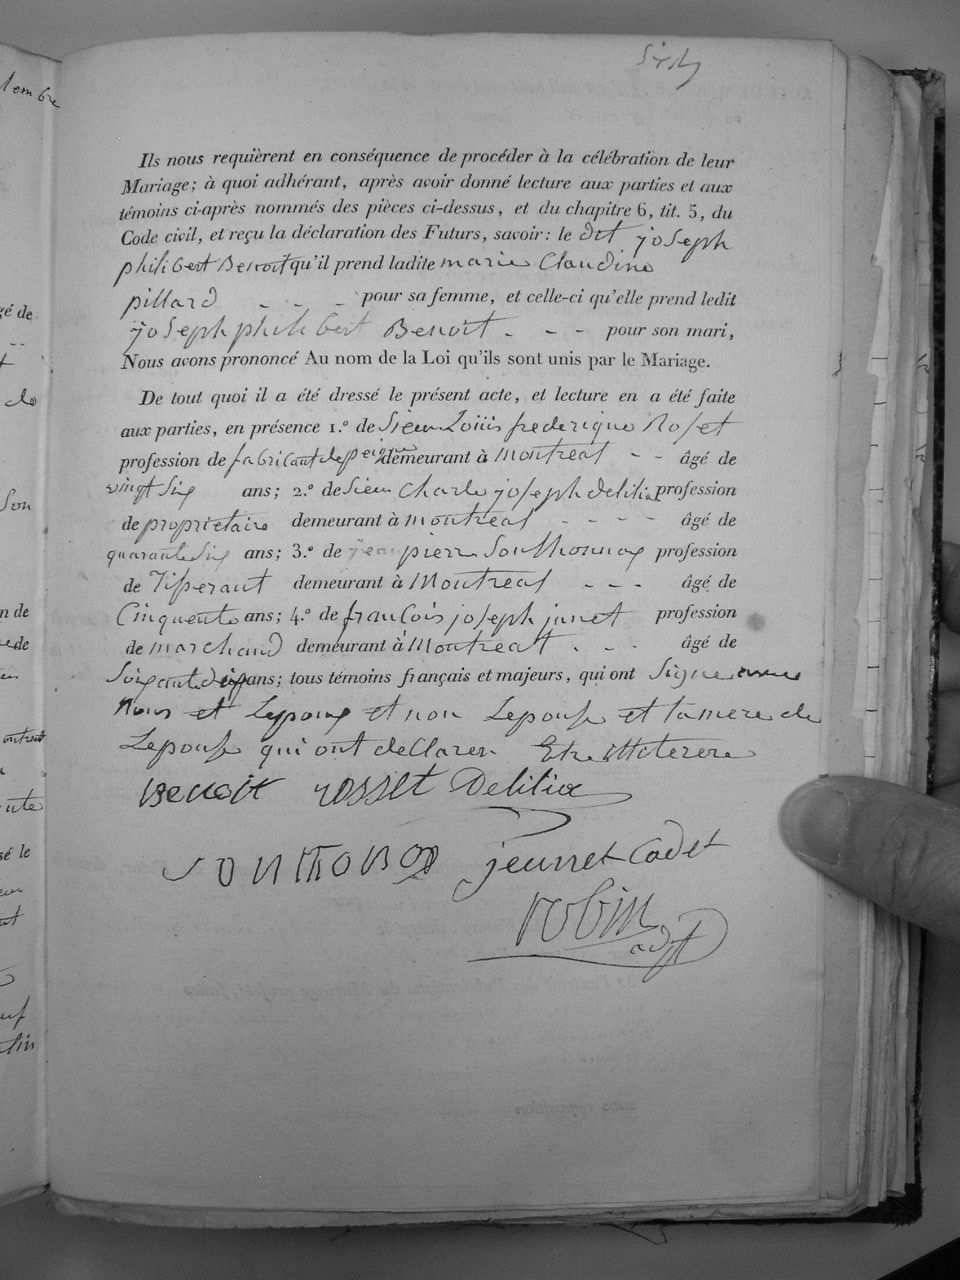 Ils nous requièrent en conséquence de procéder à la célébration de leur
Mariage; à quoi adhérant, après avoir donné lecture aux parties et aux
témoins ci-après nommés des pièces ci-dessus, et du chapitre 6, tit. 5, du
Code civil, et reçu la déclaration des Futurs, savoir: le dit joseph
philibert Benoit qu'il prend ladite marie Claudine
pillard - - - pour sa femme, et celle-ci qu'elle prend ledit
joseph philibert Benoit - - - pour son mari,
Nous avons prononcé Au nom de la Loi qu'ils sont unis par le Mariage.
De tout quoi il a été dressé le présent acte, et lecture en a été faite
aux parties, en présence 1.° de Sieur Louis frederique Roset
profession de fabricant de peigne demeurant à Montreal - - âgé de
vingt six ans; 2.° de Sieur Charle joseph delilia profession
de proprietaire demeurant à montreal - - - - âgé de
quarante six ans; 3.° de jean pierre Southonnax profession
de Tisserant demeurant à Montreal - - - âgé de
Cinquente ans; 4.° de francois joseph junet profession
de marchand demeurant à Montreal - - - âgé de
Soixante dix ans; tous témoins français et majeurs, qui ont Signe avec
Nous et Lepoux et non Lepouse et la mere de
Lepouse qui ont declarer Etre illiterere
Benoit rosset Delilia
Sonthonax jeunet Cadet
robin
adjt